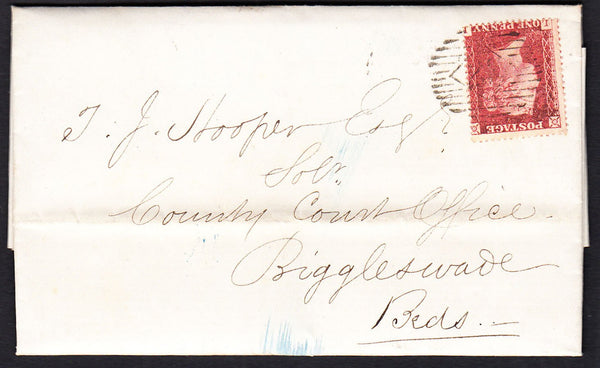 ONE PENNY
POSTAGE
T. J. Hooper Esqr
Solr.
County Court Office
Biggleswade
Beds.